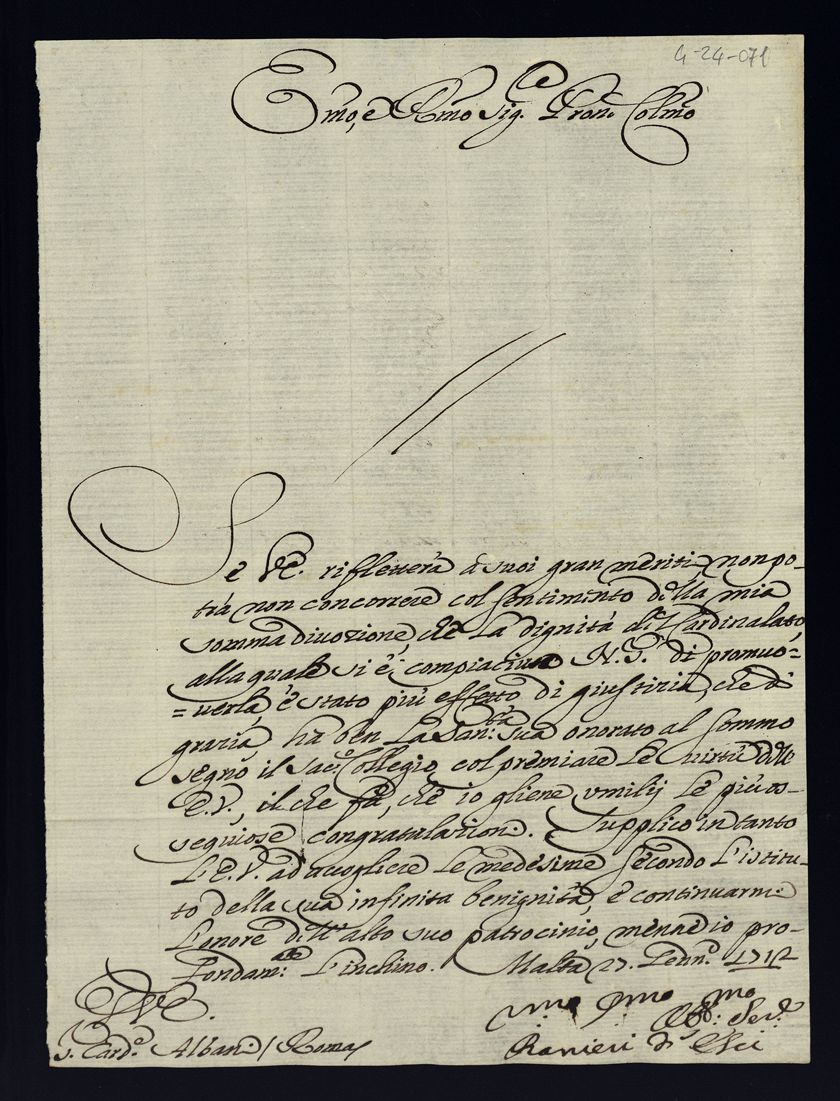 4-24-071
Emo, e Rmo Sig.re Pron. Colmo
Se VE. rifletterà à suoi gran meriti non po-
trà non concorrere col sentimento della mia
somma divozione, che la dignità di Cardinalato,
alla quale si è compiaciuta N. S. di promuo=
=verla, è stato più effetto di giustizia, che di
grazia, ha ben La San.tà sua onorato al sommo
segno il Sac.o Collegio col premiare le virtù dell'
E. V., il che fà, che io gliene umilij le più os-
sequiose congratulazioni. Supplico intanto
L'E. V. ad accogliere le medesime secondo l'istitu-
to della sua infinita benignità, e continuarmi
l'onore dell'alto suo patrocinio, mentre io pro-
fondam.te L'inchino. Malta 27. Genn.o 1712
VE.
S. Card.e Albani / Roma
Umo Dmo Obb: Ser.
Ranieri d'Elci